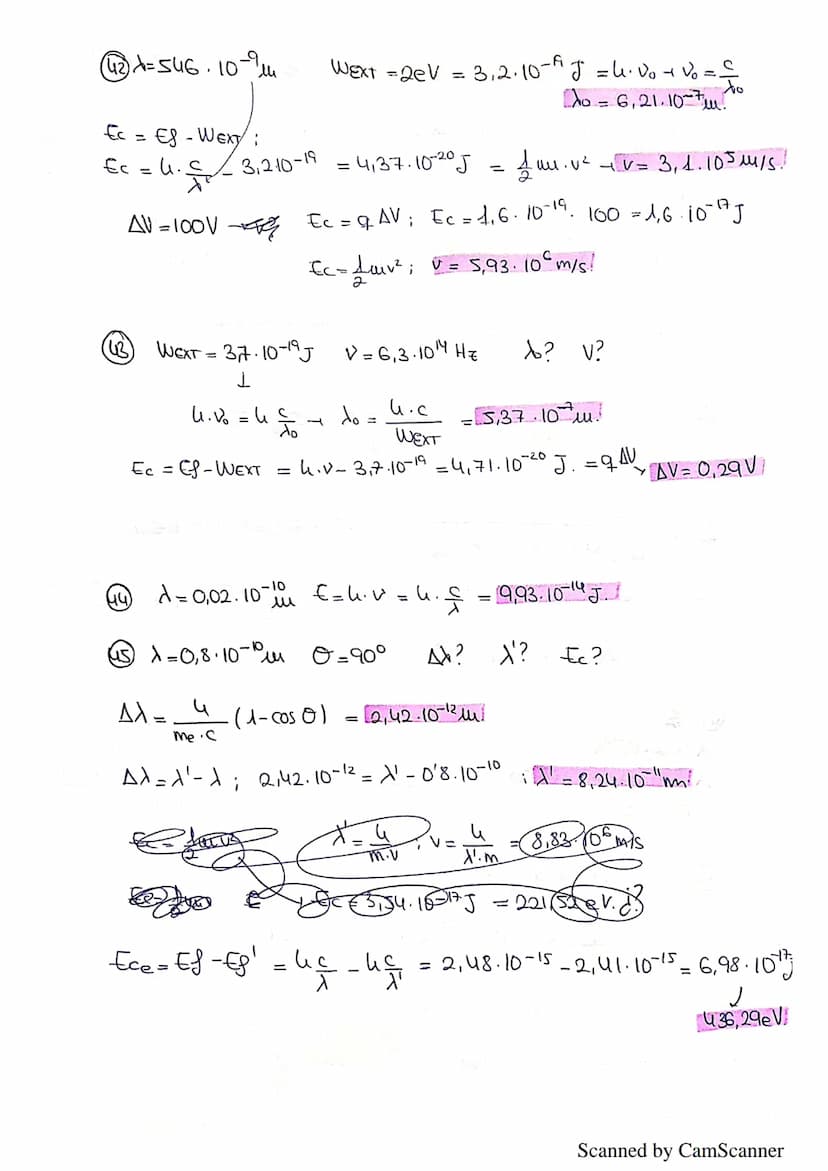 42 λ=546·10⁻⁹m WEXT=2eV = 3,2·10⁻¹⁹ J = h·ν₀ → ν₀ = c/λ₀
λ₀ = 6,21·10⁻⁷m!
Ec = Ef - WEXT ;
Ec = h·c/λ - 3,2·10⁻¹⁹ = 4,37·10⁻²⁰J = 1/2 m·v² → v= 3,1·10⁵m/s!
ΔV=100V → Ec = q ΔV ; Ec = 1,6·10⁻¹⁹· 100 = 1,6·10⁻¹⁷J
Ec = 1/2 mv² ; v = 5,93·10⁶ m/s!
43 WEXT = 3,7·10⁻¹⁹J ν=6,3·10¹⁴ Hz λ₀? V?
↓
h·ν₀ = h c/λ₀ → λ₀ = h·c/WEXT = 5,37·10⁻⁷m!
Ec = Ef-WEXT = h·ν- 3,7·10⁻¹⁹ = 4,71·10⁻²⁰ J. = q ΔV → ΔV= 0,29V!
44 λ=0,02·10⁻¹⁰m E=h·ν = h·c/λ = 9,93·10⁻¹⁴J!
45 λ=0,8·10⁻¹⁰m θ=90º Δλ? λ'? Ec?
Δλ= h/me·c (1-cos θ) = 2,42·10⁻¹²m!
Δλ=λ'-λ ; 2,42·10⁻¹² = λ' - 0'8·10⁻¹⁰ ; λ'= 8,24·10⁻¹¹m!
Ec = 1/2 mv² λ'= h/m·v ; v= h/λ'·m = 8,83·10⁶ m/s
Ec = 3,54·10⁻¹⁷J = 221,52eV.¿?
Ece = Ef - Ef' = h c/λ - h c/λ' = 2,48·10⁻¹⁵ - 2,41·10⁻¹⁵ = 6,98·10⁻¹⁷J
↓
436,29eV!
Scanned by CamScanner